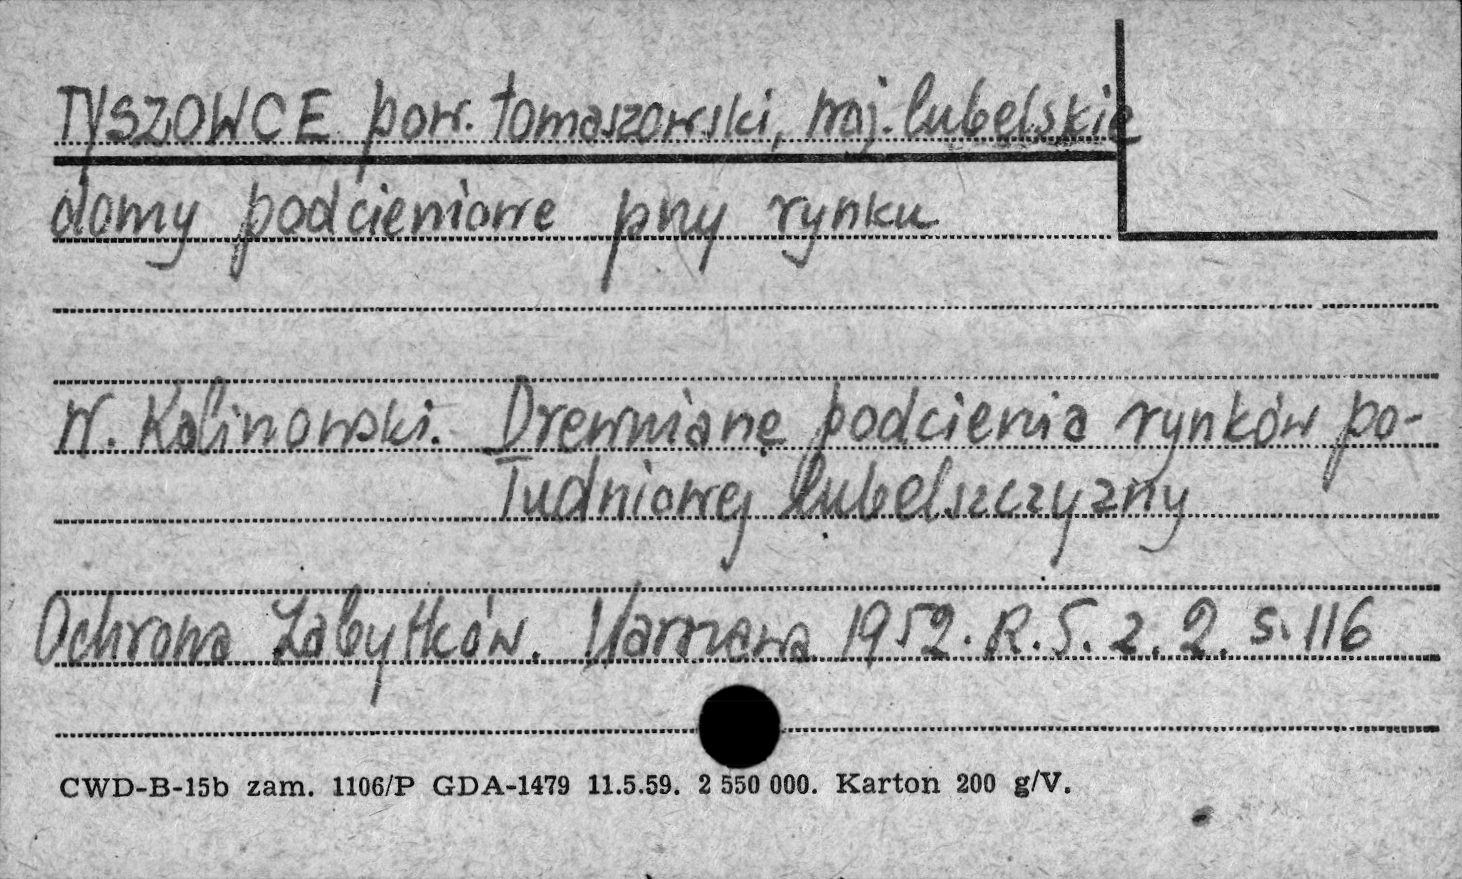 TYSZOWCE pow. tomaszowski, woj. lubelskie
domy podcieniowe przy rynku
W. Kalinowski. Drewniane podcienia rynków po-
łudniowej lubelszczyzny
Ochrona Zabytków. Warszawa 1952. R. 5. z. 2. s. 116
CWD-B-15b zam. 1106/P GDA-1479 11.5.59. 2 550 000. Karton 200 g/V.